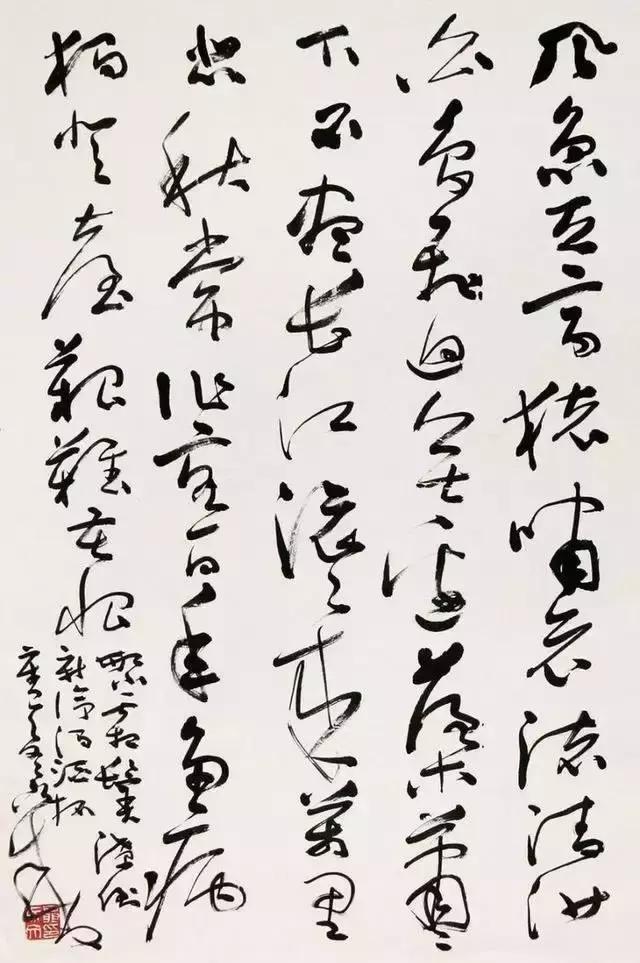 風急天高猿嘯哀渚清沙
白鳥飛迴無邊落木蕭〻
下不盡長江滾〻來萬里
悲秋常作客百年多病
獨登臺艱難苦恨
繁霜鬢潦倒
新停濁酒杯